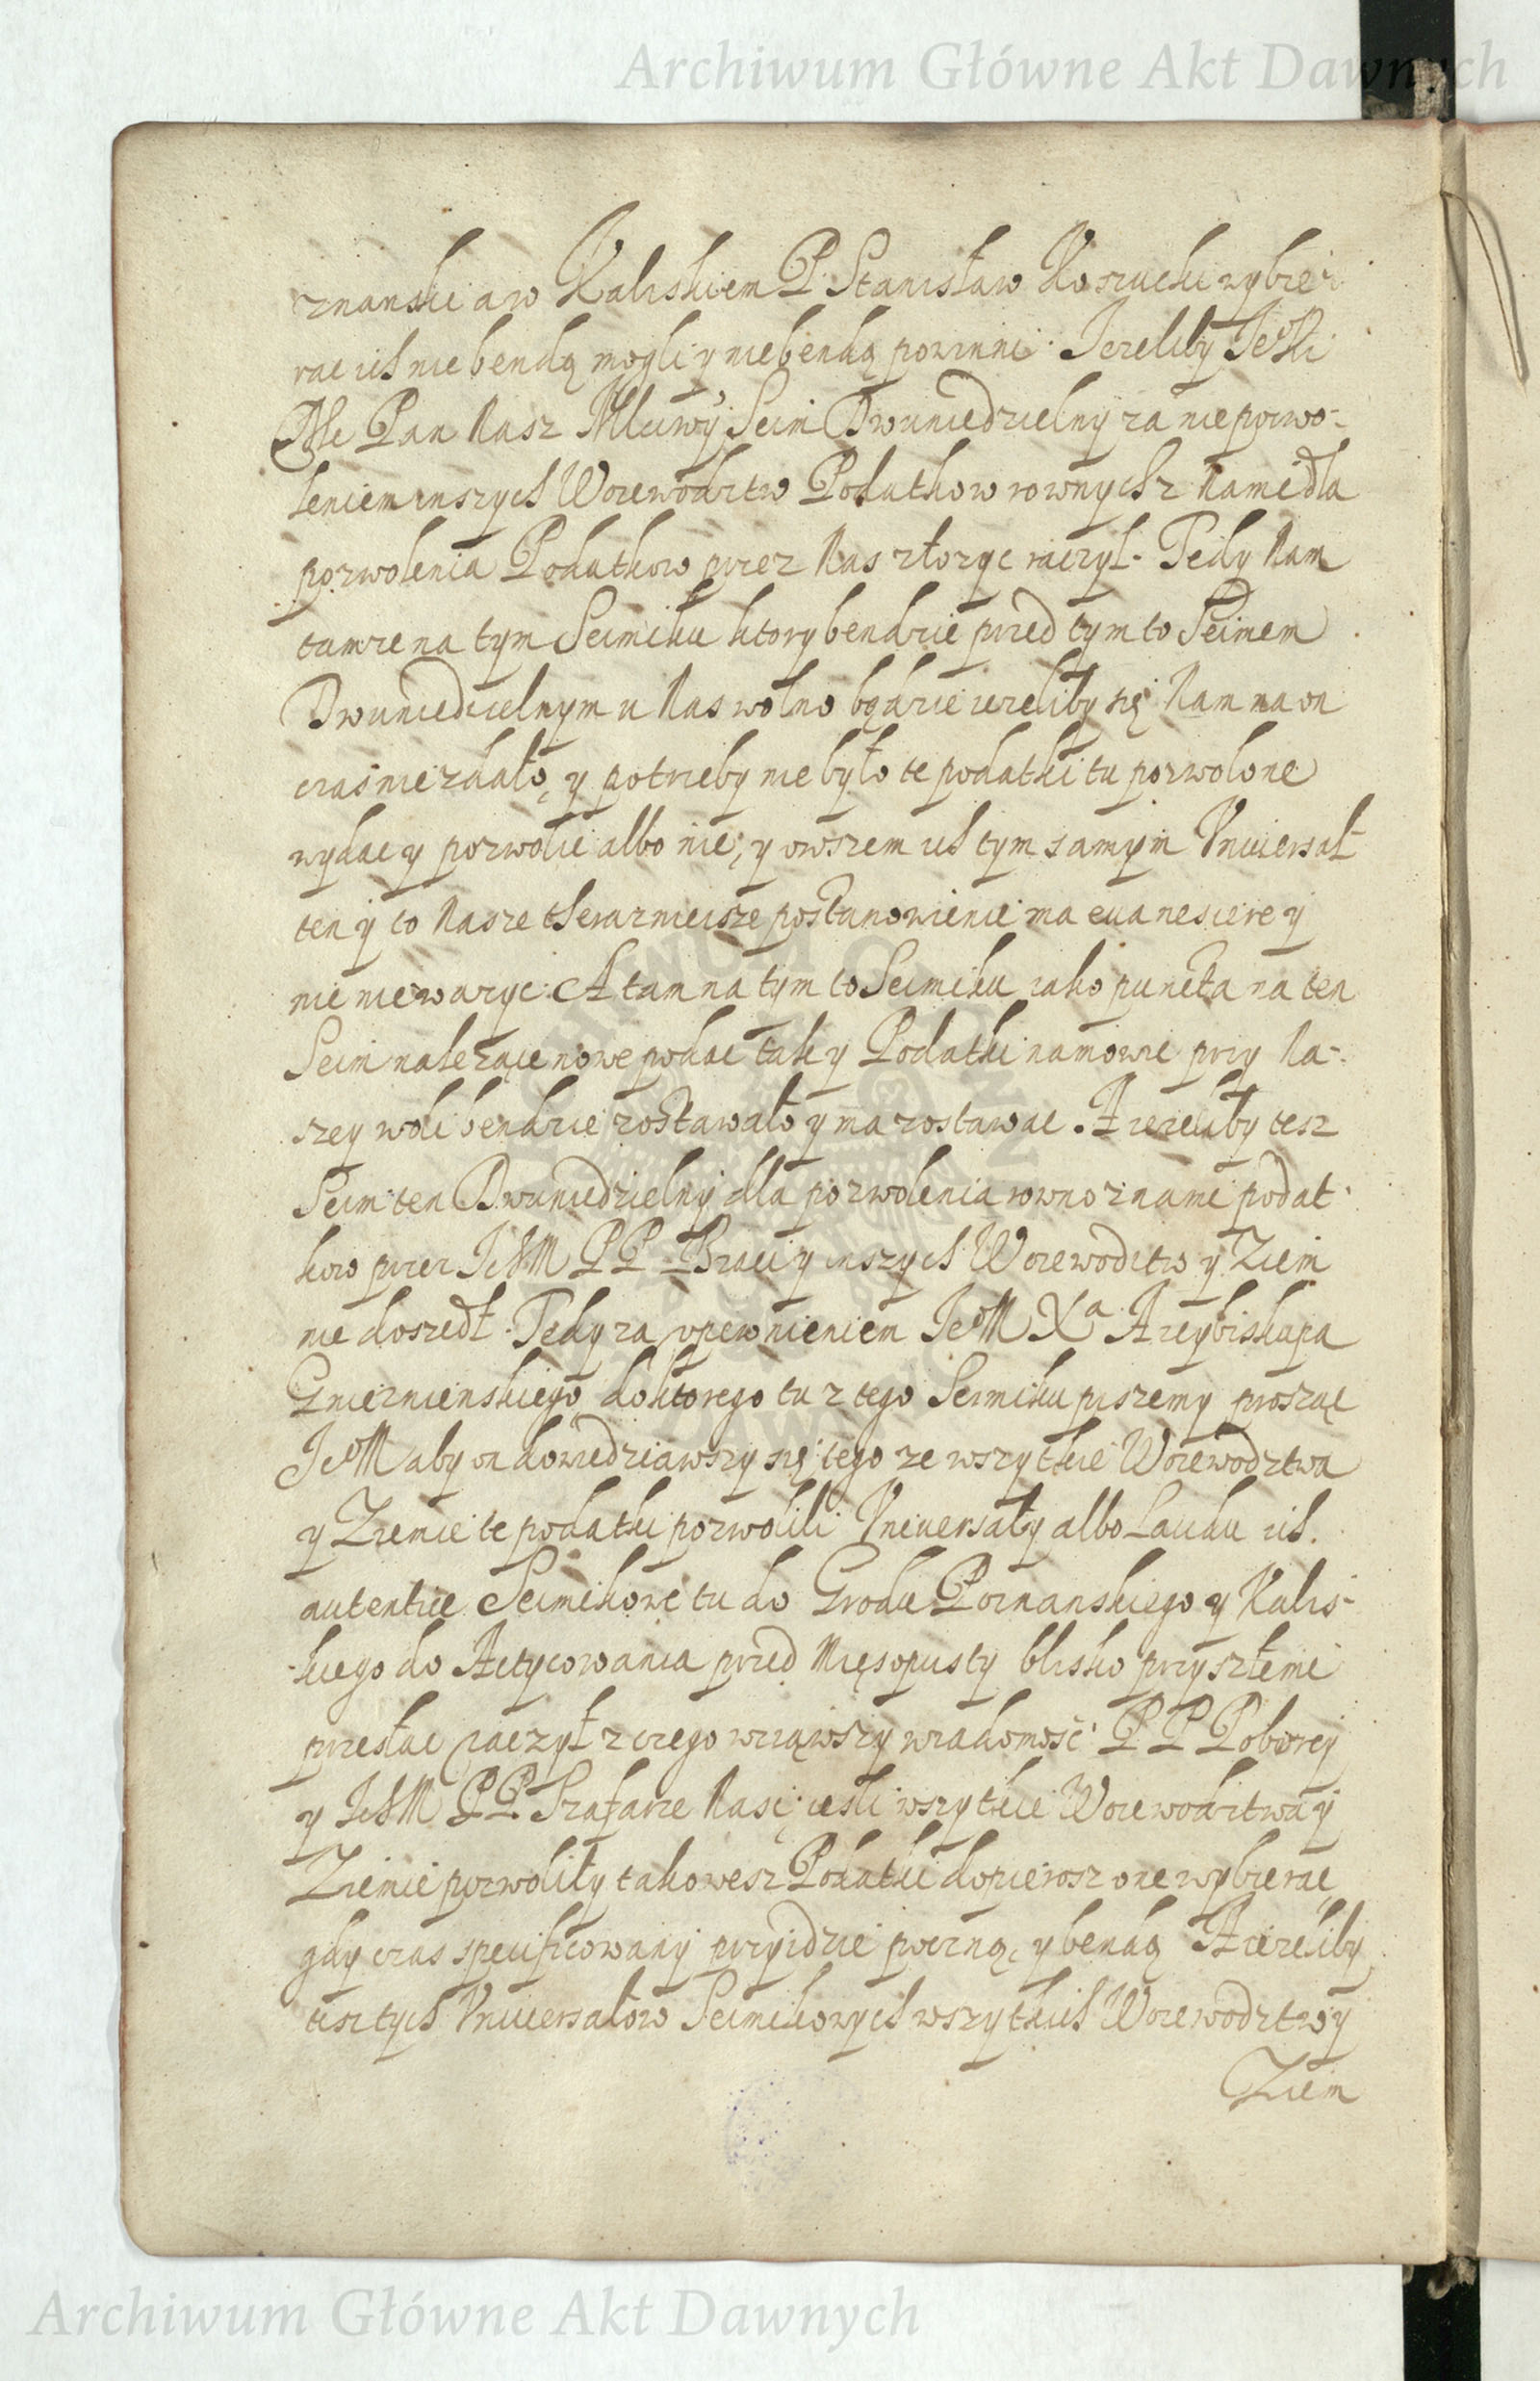 Archiwum Główne Akt Dawnych
znanski a w Kaliskiem P. Stanisław Koszucki wybie-
rac ich nie bendą mogli y nie bendą powinni. Jezeliby JeoKr
Mc Pan Nasz Mlciwy Seim Dwuniedzielny za niepozwo-
leniem inszych Woiewodztw Podatkow rownych z Nami dla
pozwolenia Podatkow przez Nas złozyc raczył. Tedy Nam
tamze na tym Seimiku ktory bendzie przed tym to Seimem
Dwuniedzielnym u Nas wolno będzie iezeliby się Nam na on
czas nie zdało, y potrzeby nie było te podatki tu pozwolone
wydac y pozwolic albo nie, y owszem ich tym samym Vniwersał
ten y to Nasze therazniejsze postanowienie ma euanescere y
nic nie wazyc. A tam na tym to Seimiku iako puncta na ten
Seim nalezące nowe podac tak y Podatki namowic przy Na-
szey woli bendzie zostawało y ma zostawac. A iezeliby tesz
Seim ten Dwuniedzielny dla pozwolenia rowno z nami podat-
kow przez IchM PP Braci y inszych Woiewodztw y Ziem
nie doszedł. Tedy za upewnieniem JeoM Xa Arcybiskupa
Gnieznienskiego do ktorego tu z tego Seimiku piszemy prosząc
JeoM aby on dowiedziawszy się tego ze wszytkie Woiewodztwa
y Ziemie te podatki pozwolili Vniuersały albo Lauda ich
autentice Seimikowe tu do Grodu Poznanskiego y Kalis-
kiego do Actycowania przed Mięsopusty blisko przyszłemi
przesłac raczył z czego wziąwszy wiadomość PP Poborcy
y IchM PP Szafarze Nasi, iesli wszytkie Woiewodztwa y
Ziemie pozwoliły takowesz Podatki dopierosz one wybierac
gdy czas specificowany przyidzie poczną, y bendą. A iezeliby
tesz tych Vniuersałow Seimikowych wszytkich Woiewodztw y
Ziem
Archiwum Główne Akt Dawnych